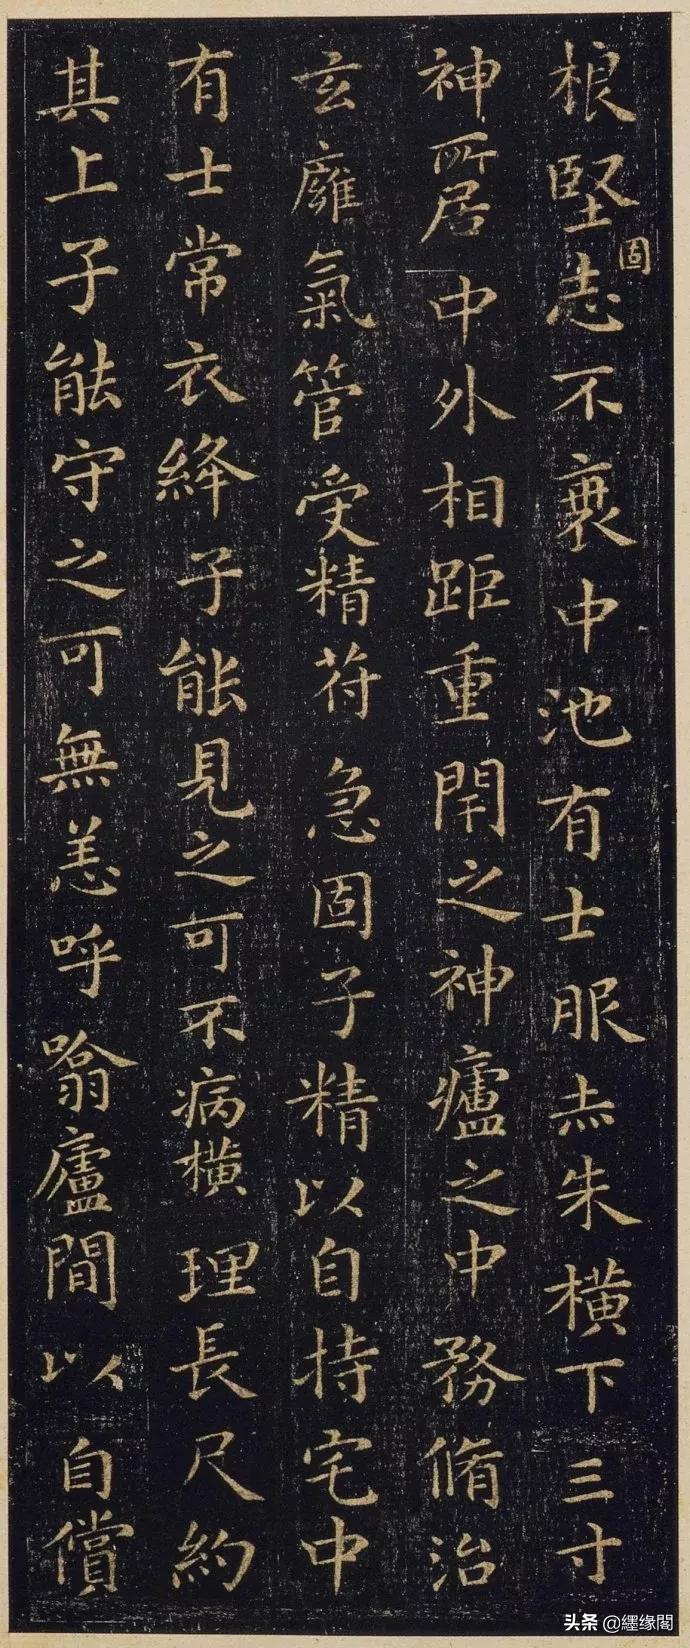 根堅志不衰中池有士服赤朱横下三寸
固
神所居中外相距重閇之神廬之中務脩治
玄廱氣管受精苻急固子精以自持宅中
有士常衣絳子能見之可不病横理長尺約
其上子能守之可無恙呼噏廬間以自償
头条 @纆缘閣